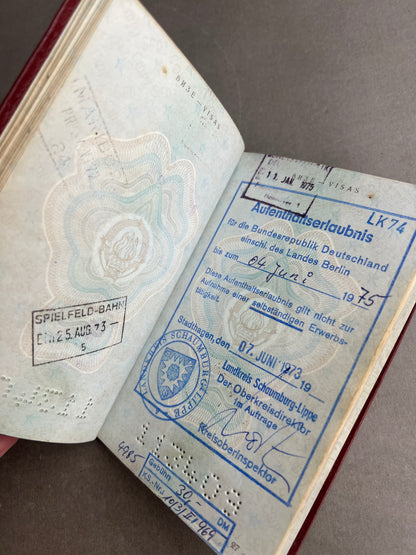 ВИЗЕ - VISAS
SPIELFELD-BAHN
EIN 25.AUG.73
5
11 JAN 1975
ВИЗЕ - VISAS
LK74
Aufenthaltserlaubnis
für die Bundesrepublik Deutschland
einschl. des Landes Berlin
bis zum 04. Juni 1975
Diese Aufenthaltserlaubnis gilt nicht zur
Aufnahme einer selbständigen Erwerbs-
tätigkeit.
Stadthagen, den 07. JUNI 1973 19
Landkreis Schaumburg-Lippe
Der Oberkreisdirektor
im Auftrage
Kreisoberinspektor
LANDKREIS SCHAUMBURG-LIPPE
Gebühr 30,- DM
KS.-Nr.
27